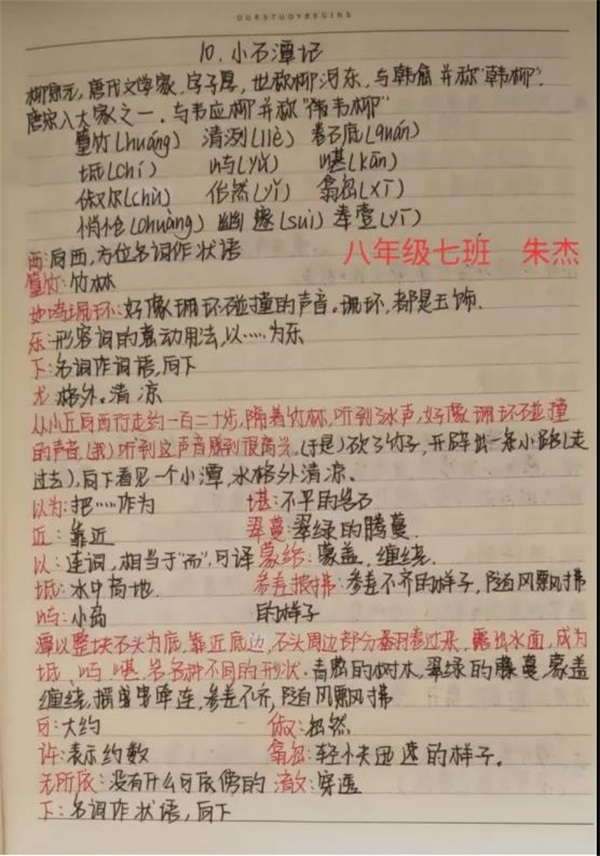 OURSTUDYBEGINS
10.小石潭记
柳宗元,唐代文学家,字子厚,也称柳河东,与韩愈并称"韩柳".
唐宋八大家之一.与韦应柳并称"韦柳"
篁竹(huáng) 清冽(liè) 卷石底(quán)
坻(chí) 屿(yǔ) 嵁(kān)
俶尔(chù) 佁然(yǐ) 翕忽(xī)
悄怆(chuàng) 幽邃(suì) 李壹(yī)
西:向西,方位名词作状语 八年级七班 朱杰
篁竹:竹林
如鸣珮环:好像珮环碰撞的声音。珮环,都是玉饰.
乐:形容词的意动用法,以……为乐
下:名词作词语,向下
尤:格外。清凉
从小丘向西行走约一百二十步,隔着竹林,听到了水声,好像珮环碰撞
的声音.(我)听到这声音感到很高兴。(于是)砍了竹子,开辟出一条小路(走
过去),向下看见一个小潭,水格外清凉。
以为:把……作为 堪:不平的岩石
近:靠近 翠蔓:翠绿的腾蔓.
以:连词,相当于"而",可译 蒙络:蒙盖,缠绕.
坻:水中高地. 参差披拂:参差不齐的样子,随风飘拂
屿:小岛 的样子
潭以整块石头为底,靠近底边,石头周边部分翻卷过来,露出水面,成为
坻、屿、嵁、岩各种不同的形状.青葱的树木,翠绿的腾蔓,蒙盖
缠绕,摇曳牵连,参差不齐,随风飘拂
可:大约 俶:忽然
许:表示约数 翕忽:轻快迅速的样子.
无所依:没有什么可依傍的 清澈:穿透
下:名词作状语,向下